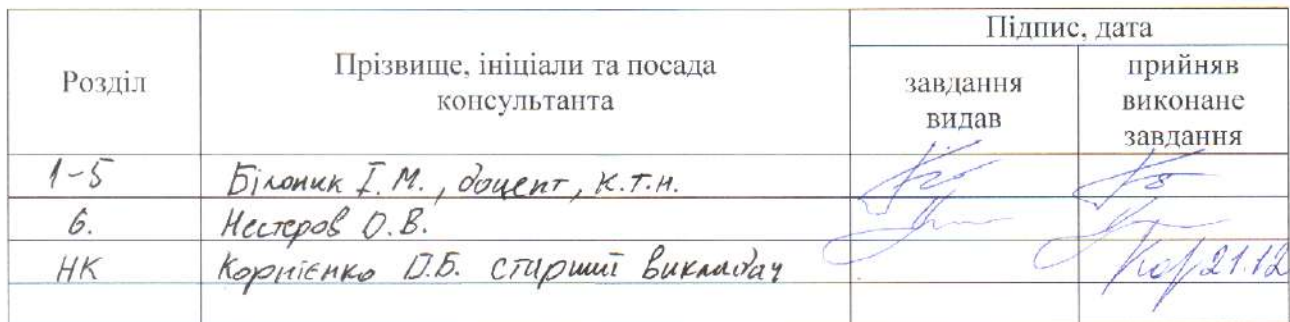 Розділ Прізвище, ініціали та посада консультанта Підпис, дата
завдання видав прийняв виконане завдання
1-5 Білоник І.М., доцент, к.т.н.
6. Нестеров О.В.
НК Корнієнко О.Б. старший викладач 21.12